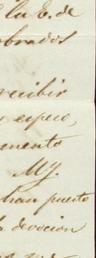 la E. de
obrados
recibir
espero,
mento
My.
han puesto
devocion